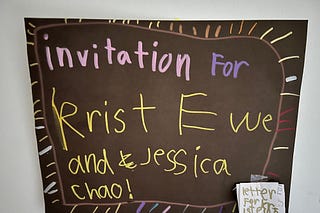 invitation For
Krist E we
and Jessica
chao!
letter
For